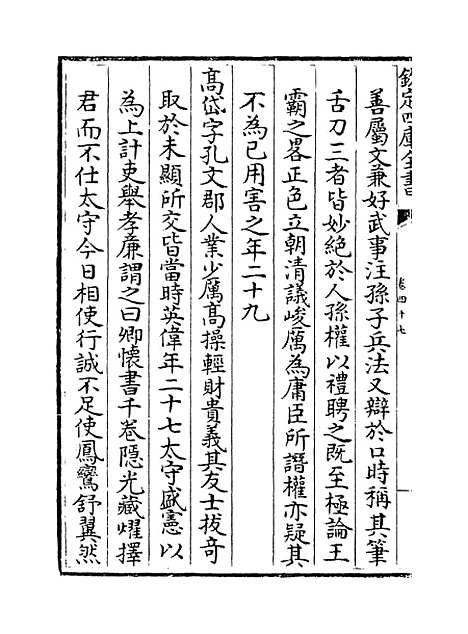 欽定四庫全書
卷四十七
善屬文兼好武事注孫子兵法又辯於口時稱其筆
舌刀三者皆妙絶於人孫權以禮聘之既至極論王
霸之畧正色立朝清議峻厲為庸臣所譖權亦疑其
不為已用害之年二十九
高岱字孔文郡人業少厲高操輕財貴義其友士拔奇
取於未顯所交皆當時英偉年二十七太守盛憲以
為上計吏舉孝廉謂之曰卿懷書千卷隱光藏燿擇
君而不仕太守今日相使行誠不足使鳳鸞舒翼然